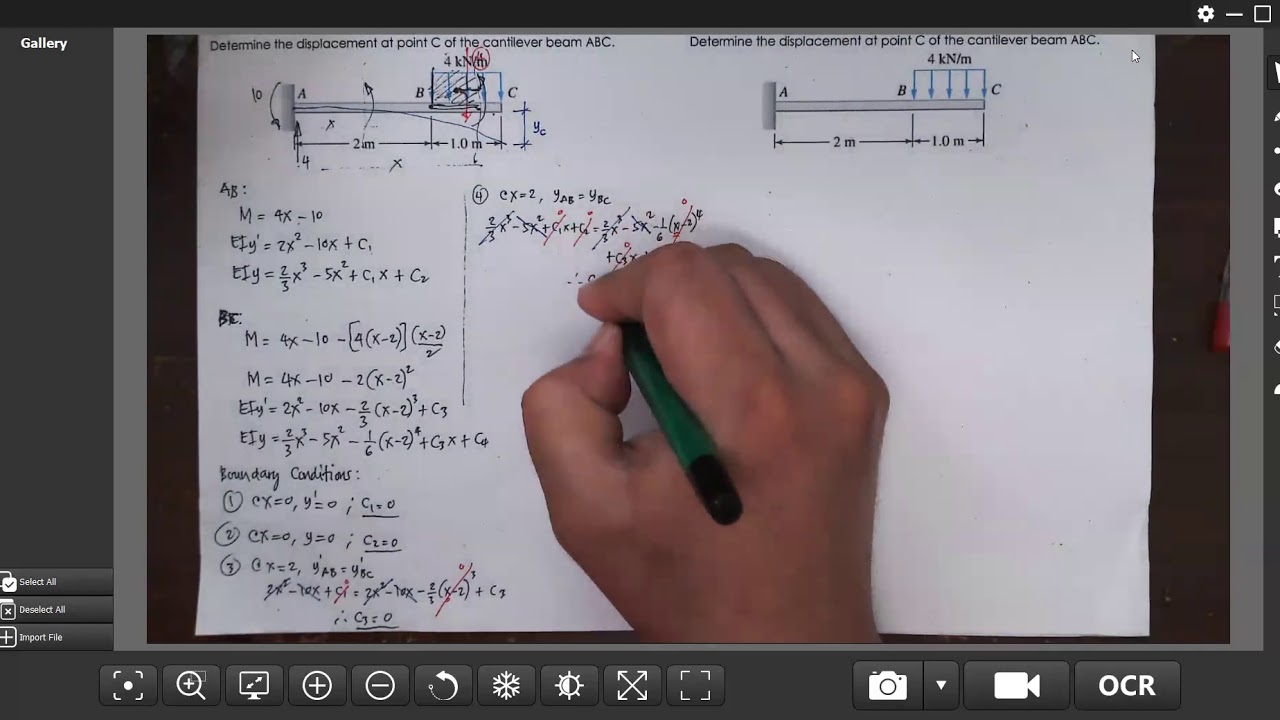 Gallery
Determine the displacement at point C of the cantilever beam ABC.
4 kN/m
10
A
B
C
x
y_C
2 m
1.0 m
4
x
6
AB:
M = 4x - 10
EIy' = 2x² - 10x + C₁
EIy = 2/3 x³ - 5x² + C₁x + C₂
BC:
M = 4x - 10 - [4(x-2)] (x-2)/2
M = 4x - 10 - 2(x-2)²
EIy' = 2x² - 10x - 2/3 (x-2)³ + C₃
EIy = 2/3 x³ - 5x² - 1/6 (x-2)⁴ + C₃x + C₄
Boundary Conditions:
① @x=0, y'=0 ; C₁=0
② @x=0, y=0 ; C₂=0
③ @x=2, y'AB = y'BC
2x² - 10x + C₁ = 2x² - 10x - 2/3 (x-2)³ + C₃
0
∴ C₃=0
④ @x=2, yAB = yBC
2/3 x³ - 5x² + C₁x + C₂ = 2/3 x³ - 5x² - 1/6 (x-2)⁴
0 0 0
+ C₃x
0
∴ C
Determine the displacement at point C of the cantilever beam ABC.
4 kN/m
A
B
C
2 m
1.0 m
Select All
Deselect All
Import File
OCR